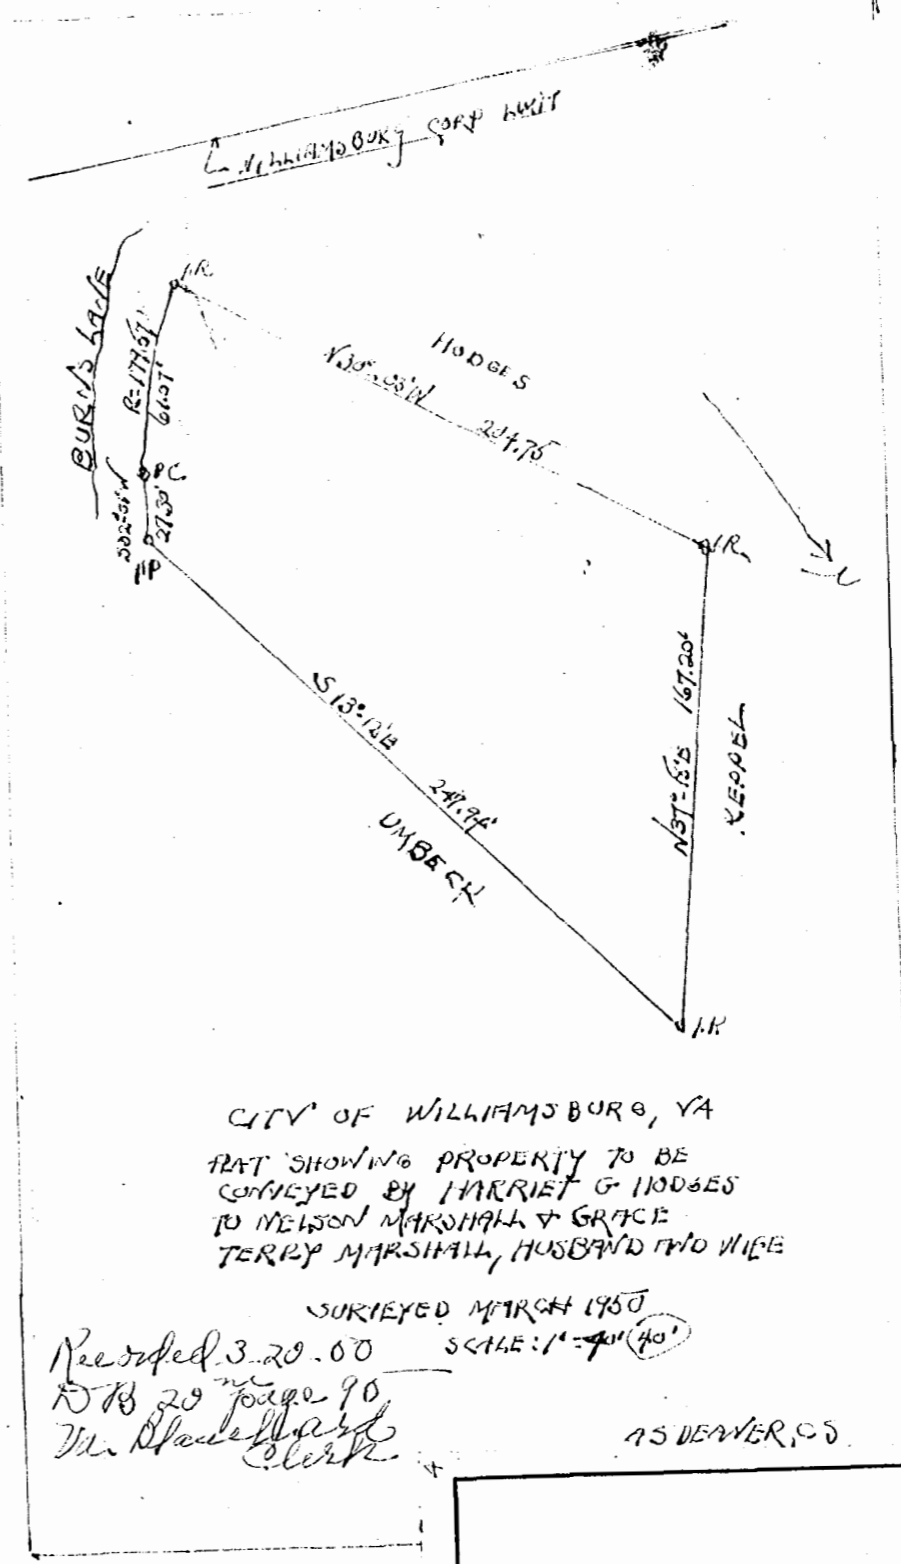 WILLIAMSBURG CORP LIMIT
I.R.
BURNS LANE
R=177.67'
61.07'
HODGES
N30°-03'W 204.75
P.C.
S02°-01'W
27.30'
I.P.
I.R.
N
S13°-12'E 247.94'
UMBECK
N37°-15'E 167.20'
KEPPEL
I.R
CITY OF WILLIAMSBURG, VA
PLAT SHOWING PROPERTY TO BE
CONVEYED BY HARRIET G HODGES
TO NELSON MARSHALL & GRACE
TERRY MARSHALL, HUSBAND AND WIFE
SURVEYED MARCH 1950
SCALE: 1" = 40' (40')
Recorded 3-20-50
DB 20 page 90
Clerk
CS